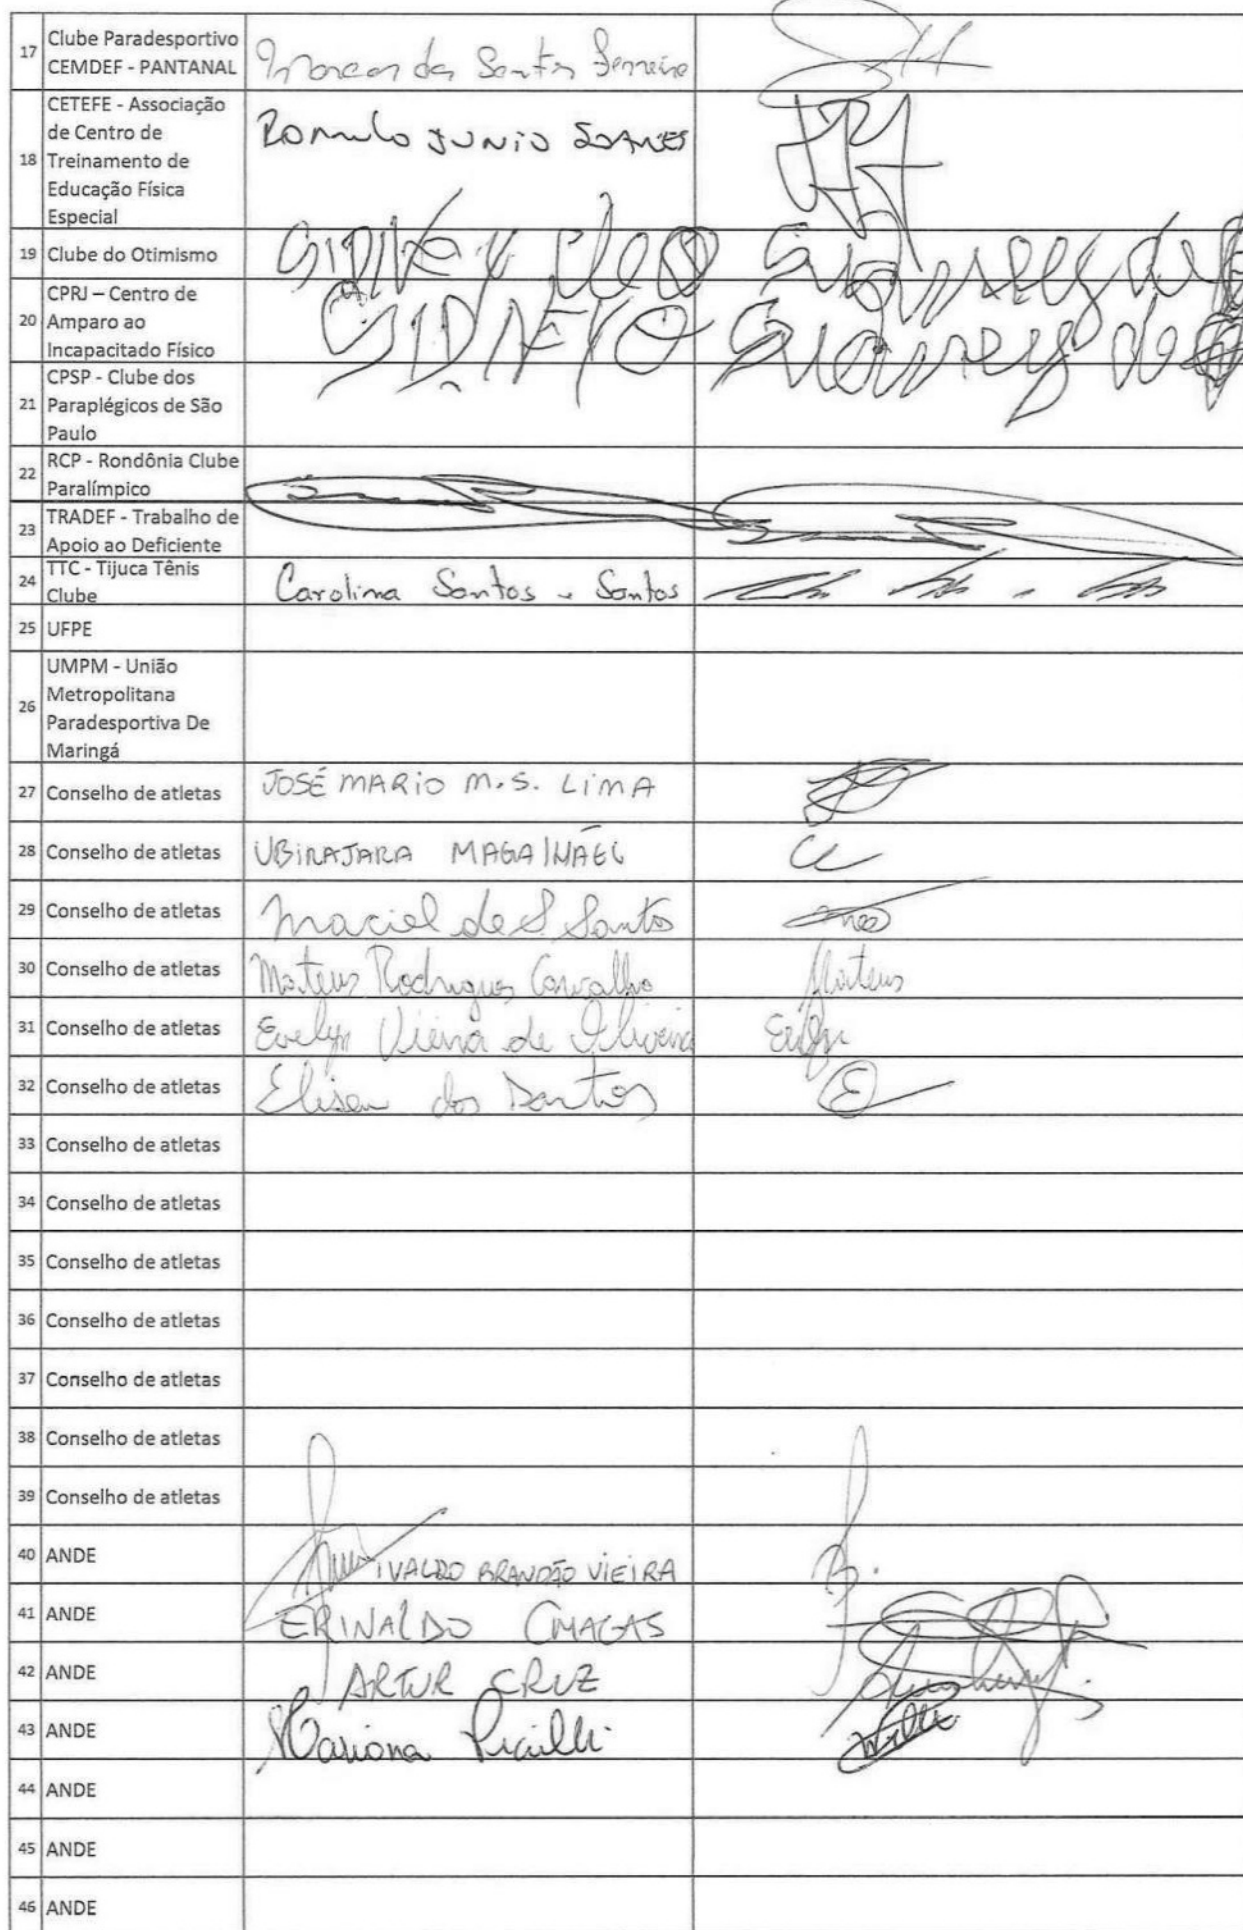 17 Clube Paradesportivo
CEMDEF - PANTANAL
Marcos dos Santos Ferreira
18 CETEFE - Associação
de Centro de
Treinamento de
Educação Física
Especial
Romulo JUNIO SOARES
19 Clube do Otimismo
20 CPRJ – Centro de
Amparo ao
Incapacitado Físico
21 CPSP - Clube dos
Paraplégicos de São
Paulo
22 RCP - Rondônia Clube
Paralímpico
23 TRADEF - Trabalho de
Apoio ao Deficiente
24 TTC - Tijuca Tênis
Clube
Carolina Santos - Santos
25 UFPE
26 UMPM - União
Metropolitana
Paradesportiva De
Maringá
27 Conselho de atletas JOSÉ MARIO M.S. LIMA
28 Conselho de atletas UBIRAJARA
29 Conselho de atletas Maciel de S. Santos
30 Conselho de atletas Mateus Rodrigues Carvalho Mateus
31 Conselho de atletas Evelyn Vieira de Oliveira
32 Conselho de atletas Eliseu dos Santos E
33 Conselho de atletas
34 Conselho de atletas
35 Conselho de atletas
36 Conselho de atletas
37 Conselho de atletas
38 Conselho de atletas
39 Conselho de atletas
40 ANDE IVALDO BRANDÃO VIEIRA
41 ANDE ERINALDO CHAGAS
42 ANDE ARTUR CRUZ
43 ANDE Mariana
44 ANDE
45 ANDE
46 ANDE